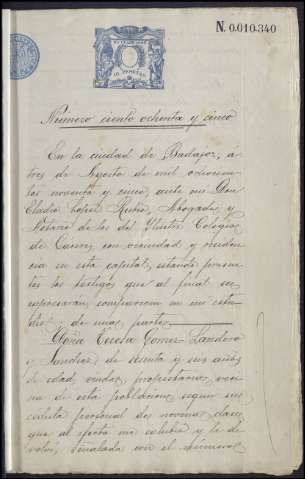 N. 0.010.340
10 PESETAS
Número ciento ochenta y cinco
En la ciudad de Badajoz, á
tres de Agosto de mil ochocien-
tos noventa y cinco, ante mi Don
Claudio Lopez Rubio, Abogado y
Notario de los del Ilustre Colegio
de Cáceres, con vecindad y residen
cia en esta capital, estando presen
tes los testigos que al final se
expresarán, comparecen en mi estu
dio, de una parte
Doña Teresa Gomez Landero
y Sanchez de setenta y seis años
de edad, viuda, propietaria, veci
na de esta poblacion, segun su
cedula personal de novena clase
que al efecto me exhibe y le de
volví, señalada con el número